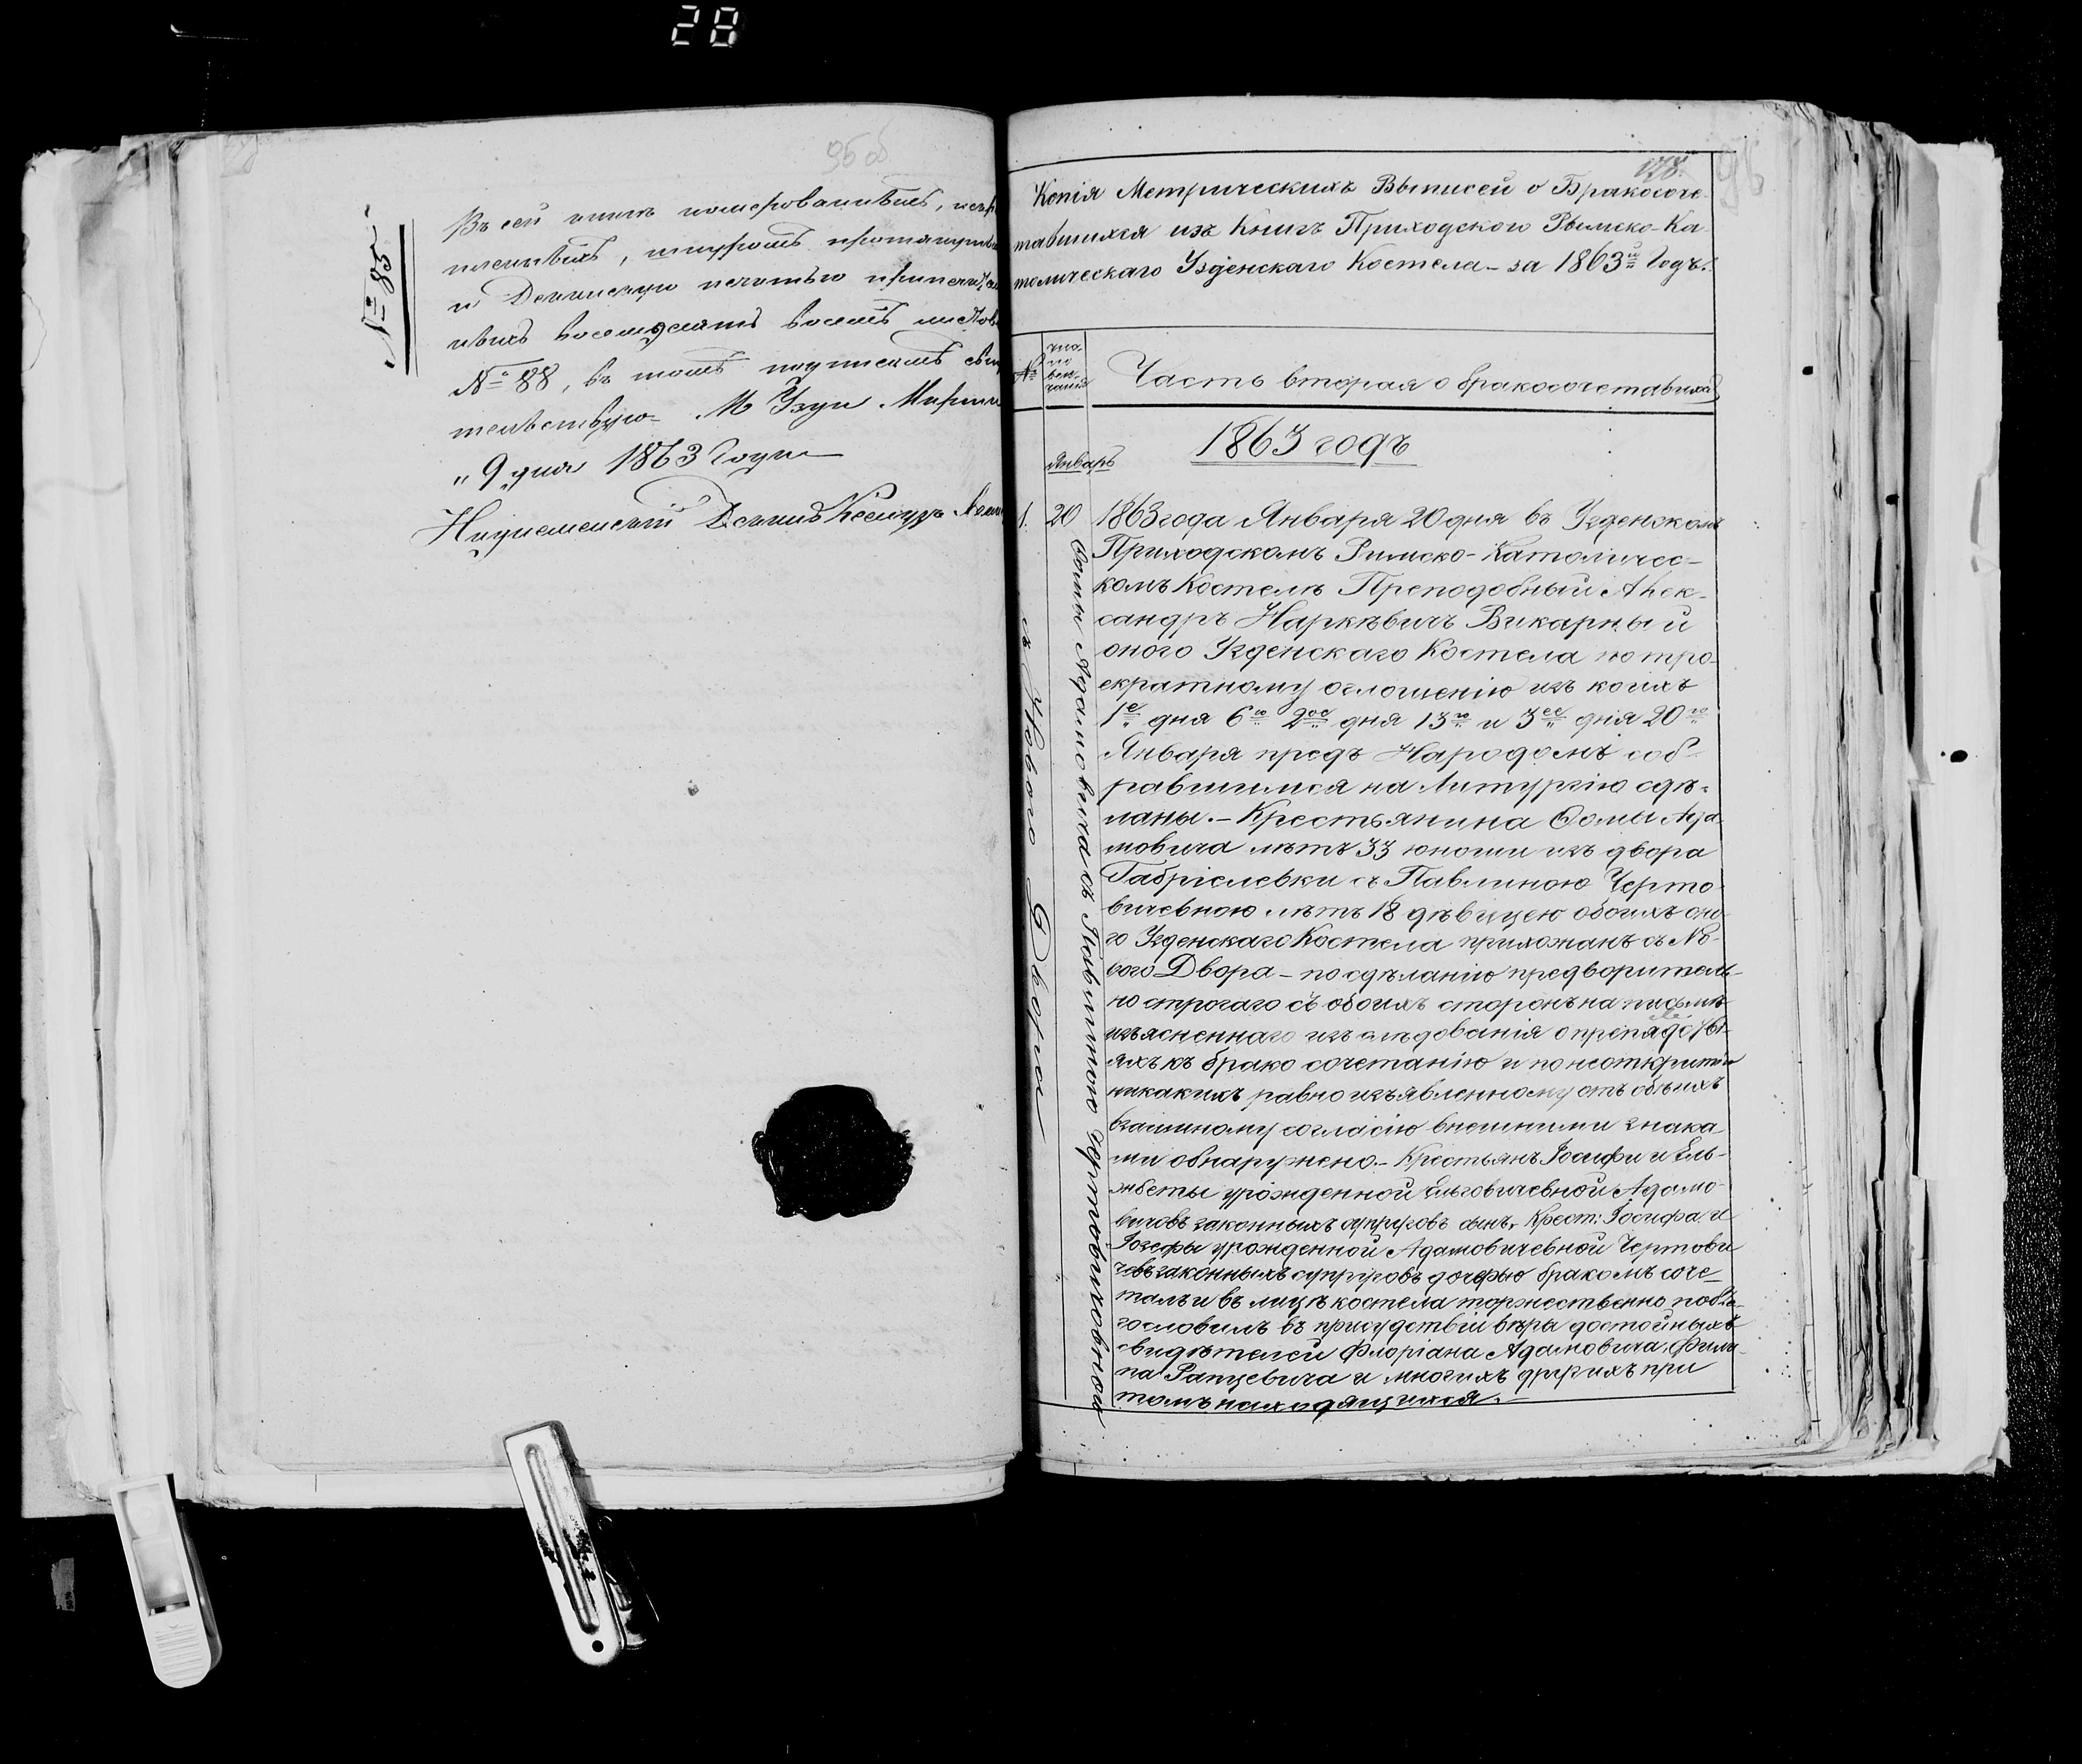 28
95 об
№ 85
Въ сей книгѣ номерованныхъ,
шнуромъ
и Деканскую печатью
восемдесятъ восемь листовъ
№ 88, въ томъ подписомъ
М Узда
"9 дня 1863 Года
Наднеменскій Деканъ Ксендзъ
178.
96
Копія Метрическихъ Выписей о Бракосоче-
тавшихся изъ Книгъ Приходского Рымско-Ка
толическаго Узденскаго Костела - за 1863й Годъ.
№
чи-
вен-
чанія
Часть вторая о бракосочетавшихся
1863 годъ
Январь
1. 20 1863 года Января 20 дня въ Узденскомъ
Приходскомъ Римско-Католичес-
комъ Костелѣ Преподобный Алек-
сандръ Наркѣвичъ Викарный
оного Узденскаго Костела по тро-
екратному оглошенію изъ коихъ
1е дня 6го 2ое дня 13го и 3ее дня 20го
Января предъ Народомъ соб-
равшимся на Литургію сдѣ-
ланы. - Крестьянина Ѳомы Ада
мовича лѣтъ 33 юноши изъ двора
Габріелевки съ Павлиною Черто-
вичевною лѣтъ 18 дѣвицею обоихъ оно
го Узденскаго Костела прихожанъ съ Но-
вого Двора - по сдѣланію предворитель-
но строгаго съ обоихъ сторонъ на письмѣ
изъясненнаго изъ слѣдованія о препядстви-
яхъ къ брако сочетанію и по неоткрытіи
никакихъ равно изъявленному отъ обѣихъ
взаимному согласію внешними знака
ми обнаружено. - Крестьянъ Іосифи и Ель-
жбеты урожденной Ельговичевной Адамо-
вичовъ законныхъ супруговъ сынъ, Крест: Іосифа и
Іозефы урожденной Адамовичевной Чертови
чевъ законныхъ супруговъ дочерью бракомъ соче-
талъ и въ лицѣ костела торжественно побла-
гословилъ въ присудствіи вѣры достойныхъ
свидѣтелей Флоріана Адамовича, Фили-
па Рапцевича и многихъ другихъ при
томъ находящихся. -
Ѳомы Адамовича съ Павлиною Чертовичовною
съ Нового Двора